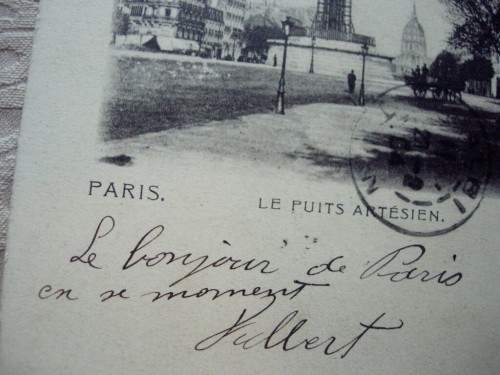 PARIS.
LE PUITS ARTÉSIEN.
Le bonjour de Paris
en se moment